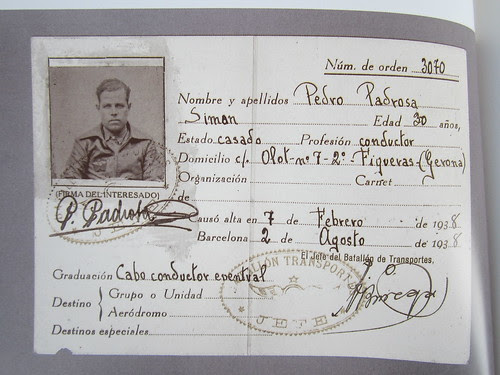 Núm. de orden 3070
Nombre y apellidos Pedro Padrosa
Simon Edad 30 años,
Estado casado Profesión conductor
Domicilio c/. Olot-nº 7-2º Figueras-(Gerona)
Organización Carnet
de
(FIRMA DEL INTERESADO)
P. Padrosa
Causó alta en 7 de Febrero de 1938
Barcelona 2 de Agosto de 1938
El Jefe del Batallón de Transportes,
P. O.
Graduación Cabo conductor eventual
Destino Grupo o Unidad
Aeródromo
Destinos especiales
TRANSPORTE
JEFE